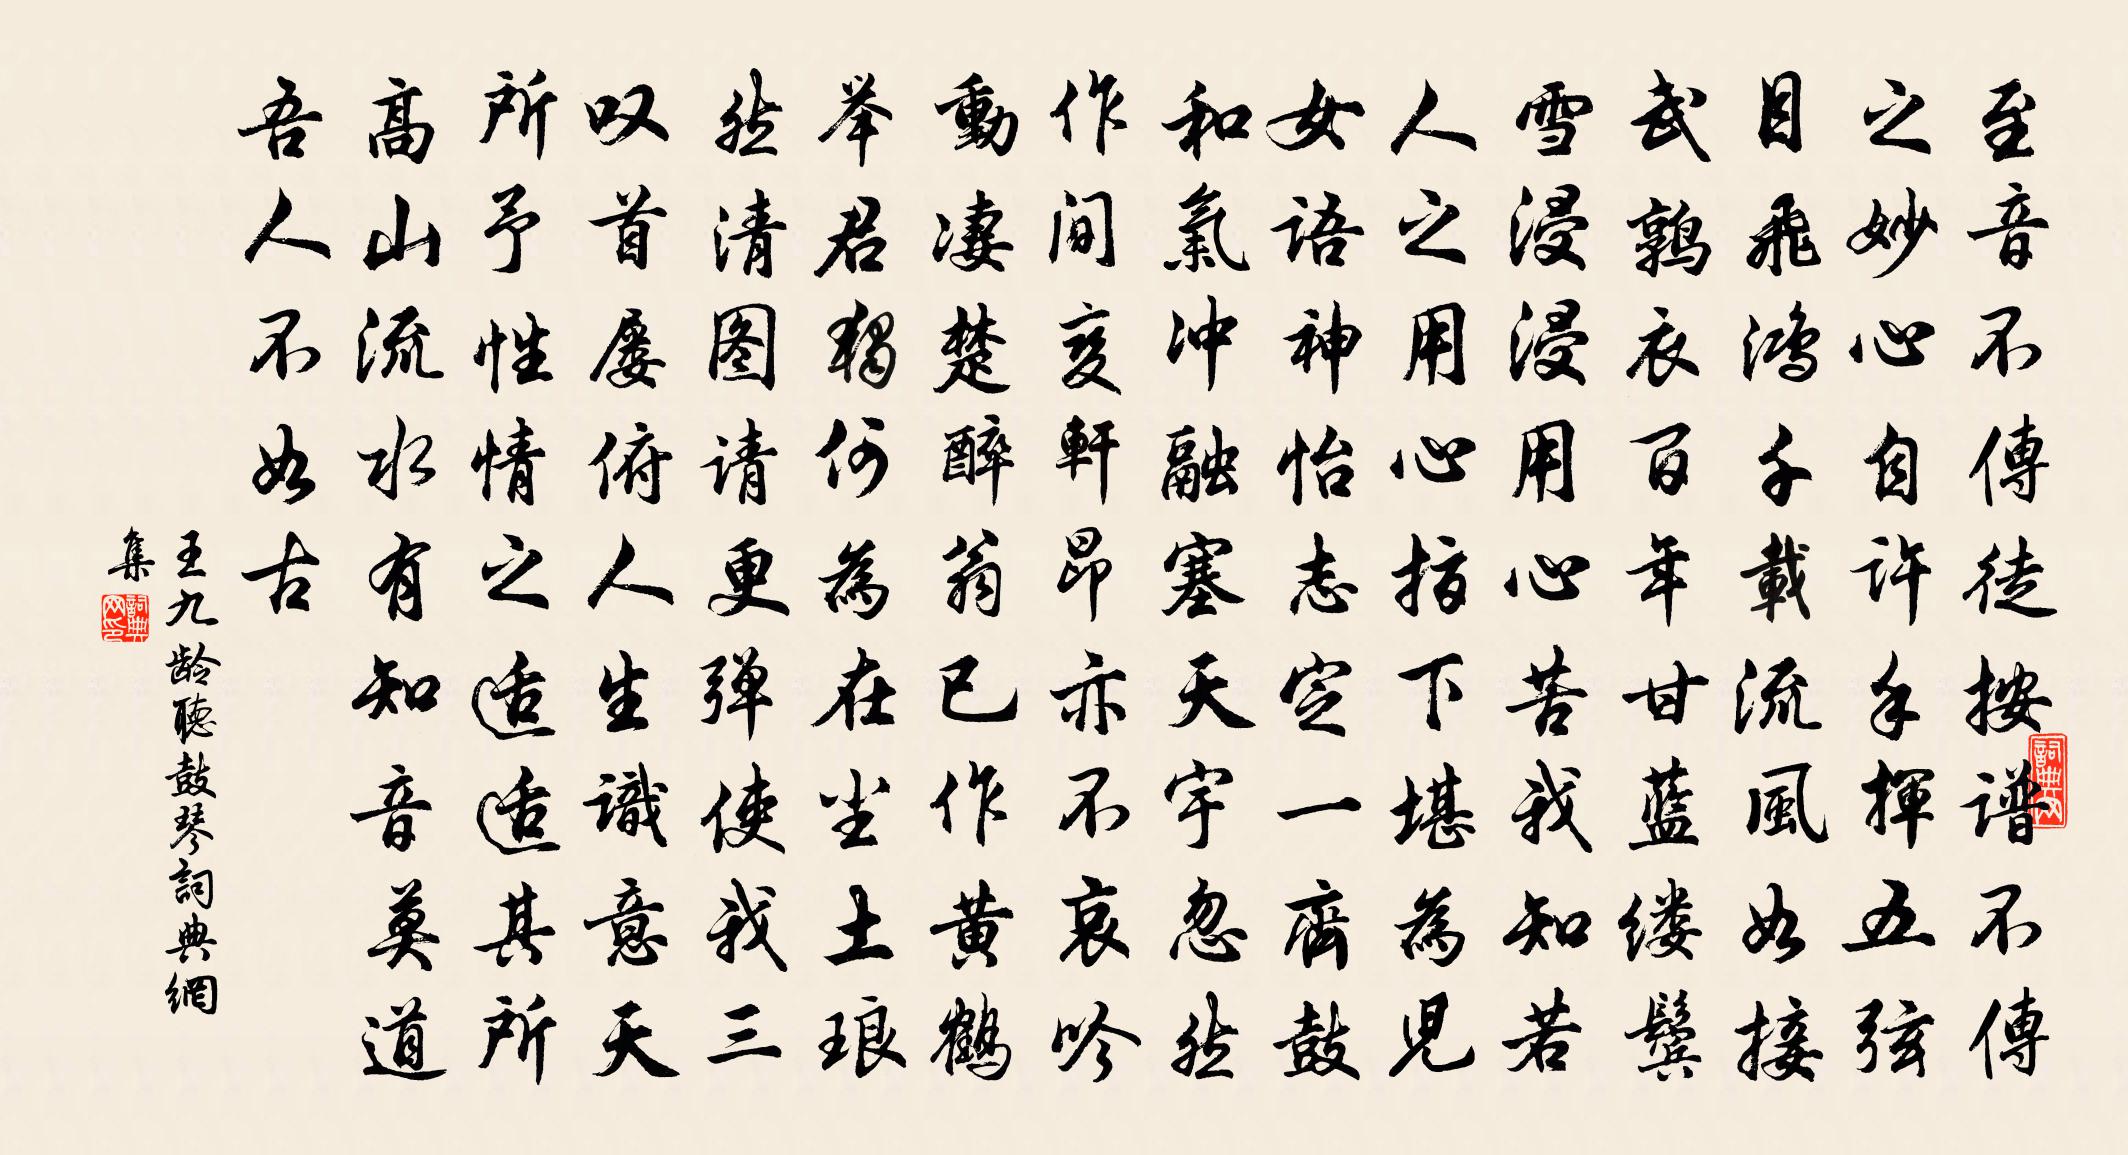 至音不傳徒按谱不傳
之妙心自许手揮五弦
目飛鴻千載流風如接
武鹑衣百年甘藍缕鬓
雪浸浸用心苦我知若
人之用心指下堪為児
女语神怡志定一齊鼓
和氣冲融塞天宇忽然
作间变軒昂亦不哀吟
動凄楚醉翁已作黄鶴
举君獨何為在尘土琅
然清图请更弹使我三
叹首屡俯人生識意天
所予性情之适适其所
高山流水有知音莫道
吾人不如古
王九龄聽鼓琴詞典網
集
詞典